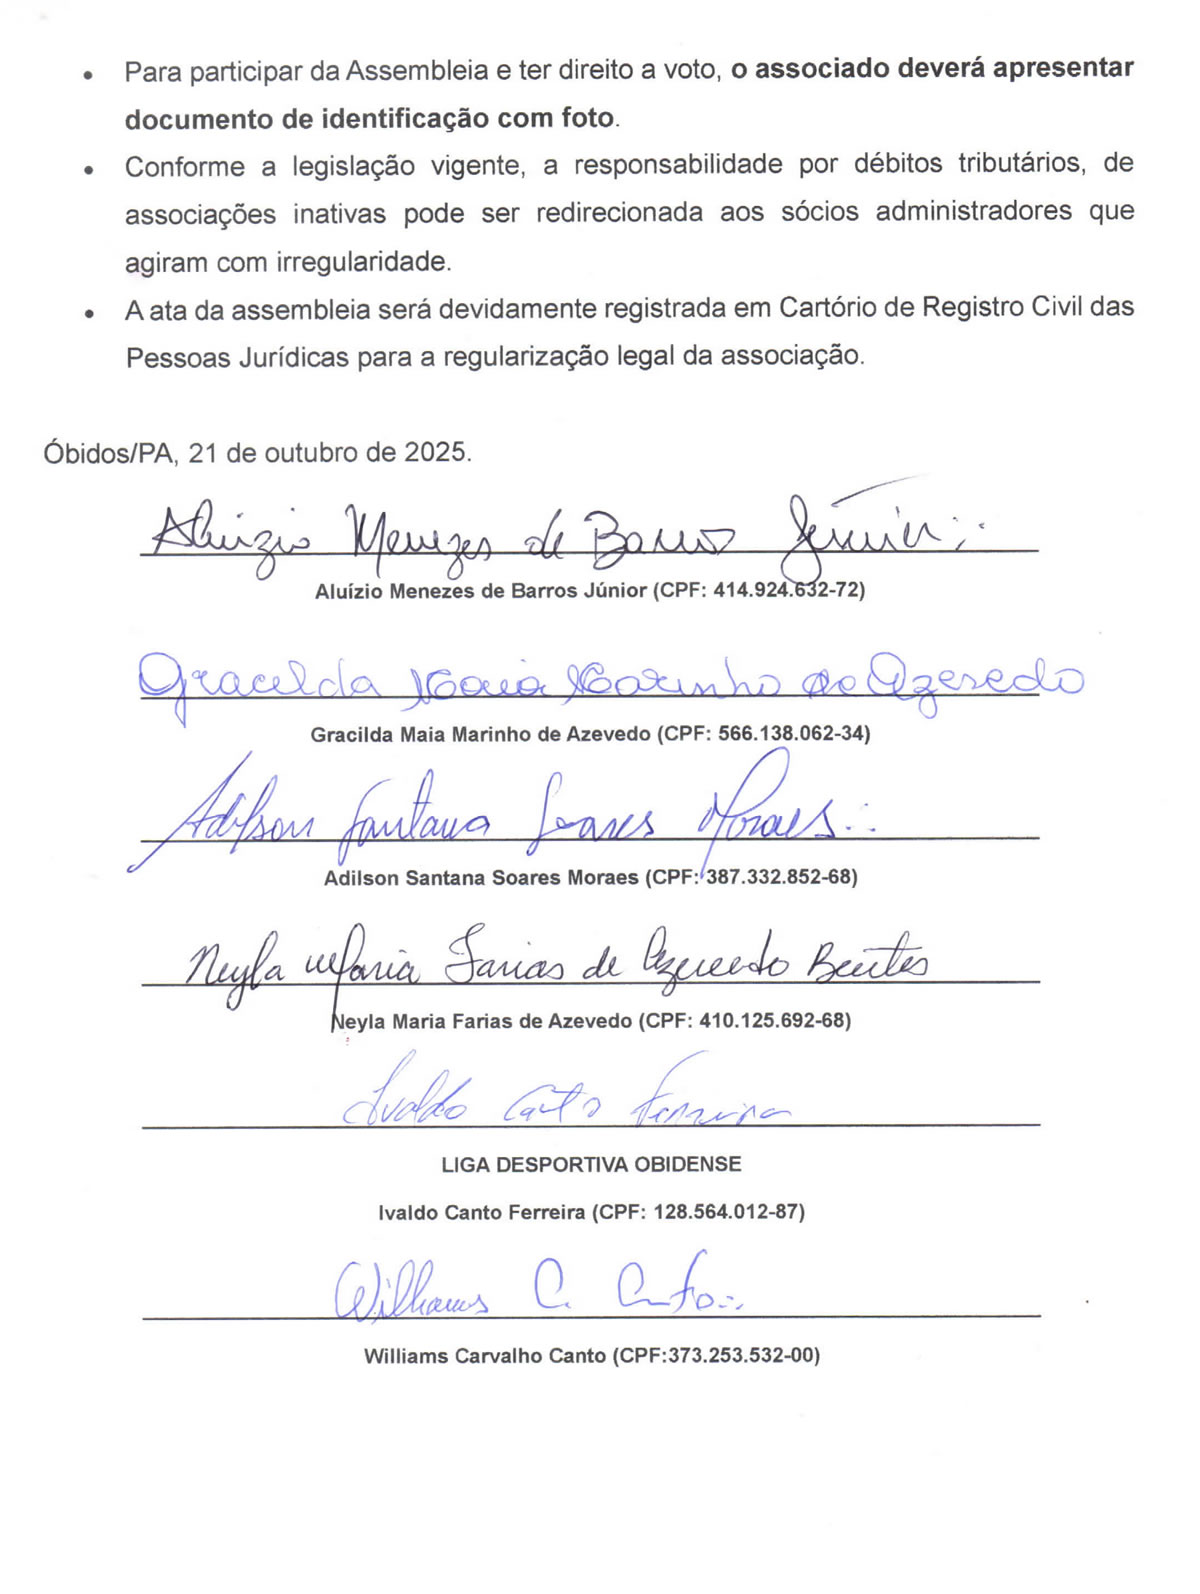 • Para participar da Assembleia e ter direito a voto, o associado deverá apresentar
documento de identificação com foto.
• Conforme a legislação vigente, a responsabilidade por débitos tributários, de
associações inativas pode ser redirecionada aos sócios administradores que
agiram com irregularidade.
• A ata da assembleia será devidamente registrada em Cartório de Registro Civil das
Pessoas Jurídicas para a regularização legal da associação.
Óbidos/PA, 21 de outubro de 2025.
Aluizio Menezes de Barros Júnior
Aluízio Menezes de Barros Júnior (CPF: 414.924.632-72)
Gracilda Maia Marinho de Azevedo
Gracilda Maia Marinho de Azevedo (CPF: 566.138.062-34)
Adilson Santana Soares Moraes
Adilson Santana Soares Moraes (CPF: 387.332.852-68)
Neyla Maria Farias de Azevedo Bentes
Neyla Maria Farias de Azevedo (CPF: 410.125.692-68)
Ivaldo Canto Ferreira
LIGA DESPORTIVA OBIDENSE
Ivaldo Canto Ferreira (CPF: 128.564.012-87)
Williams C. Canto
Williams Carvalho Canto (CPF:373.253.532-00)